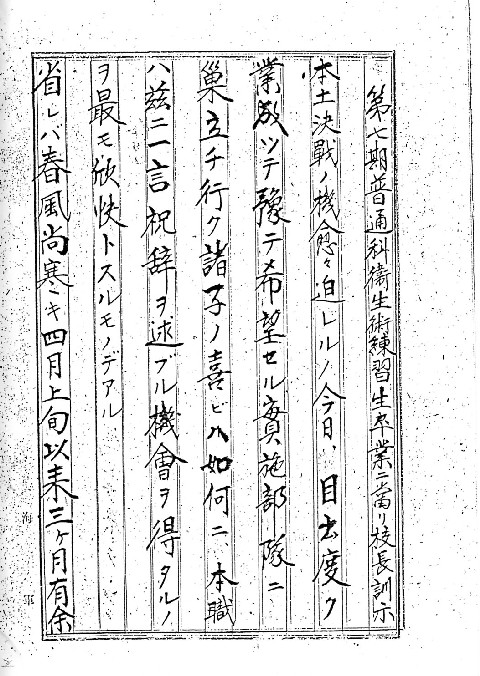 第七期普通科衛生術練習生卒業ニ當リ校長訓示
本土決戰ノ機愈々迫レルノ今日、目出度ク
業成ツテ豫テ希望セル實施部隊ニ
巣立チ行ク諸子ノ喜ビハ如何ニ、本職
ハ茲ニ一言祝辞ヲ述ブル機會ヲ得タルノ
ヲ最モ欣快トスルモノデアル
省レバ春風尚寒キ四月上旬以来三ヶ月有余